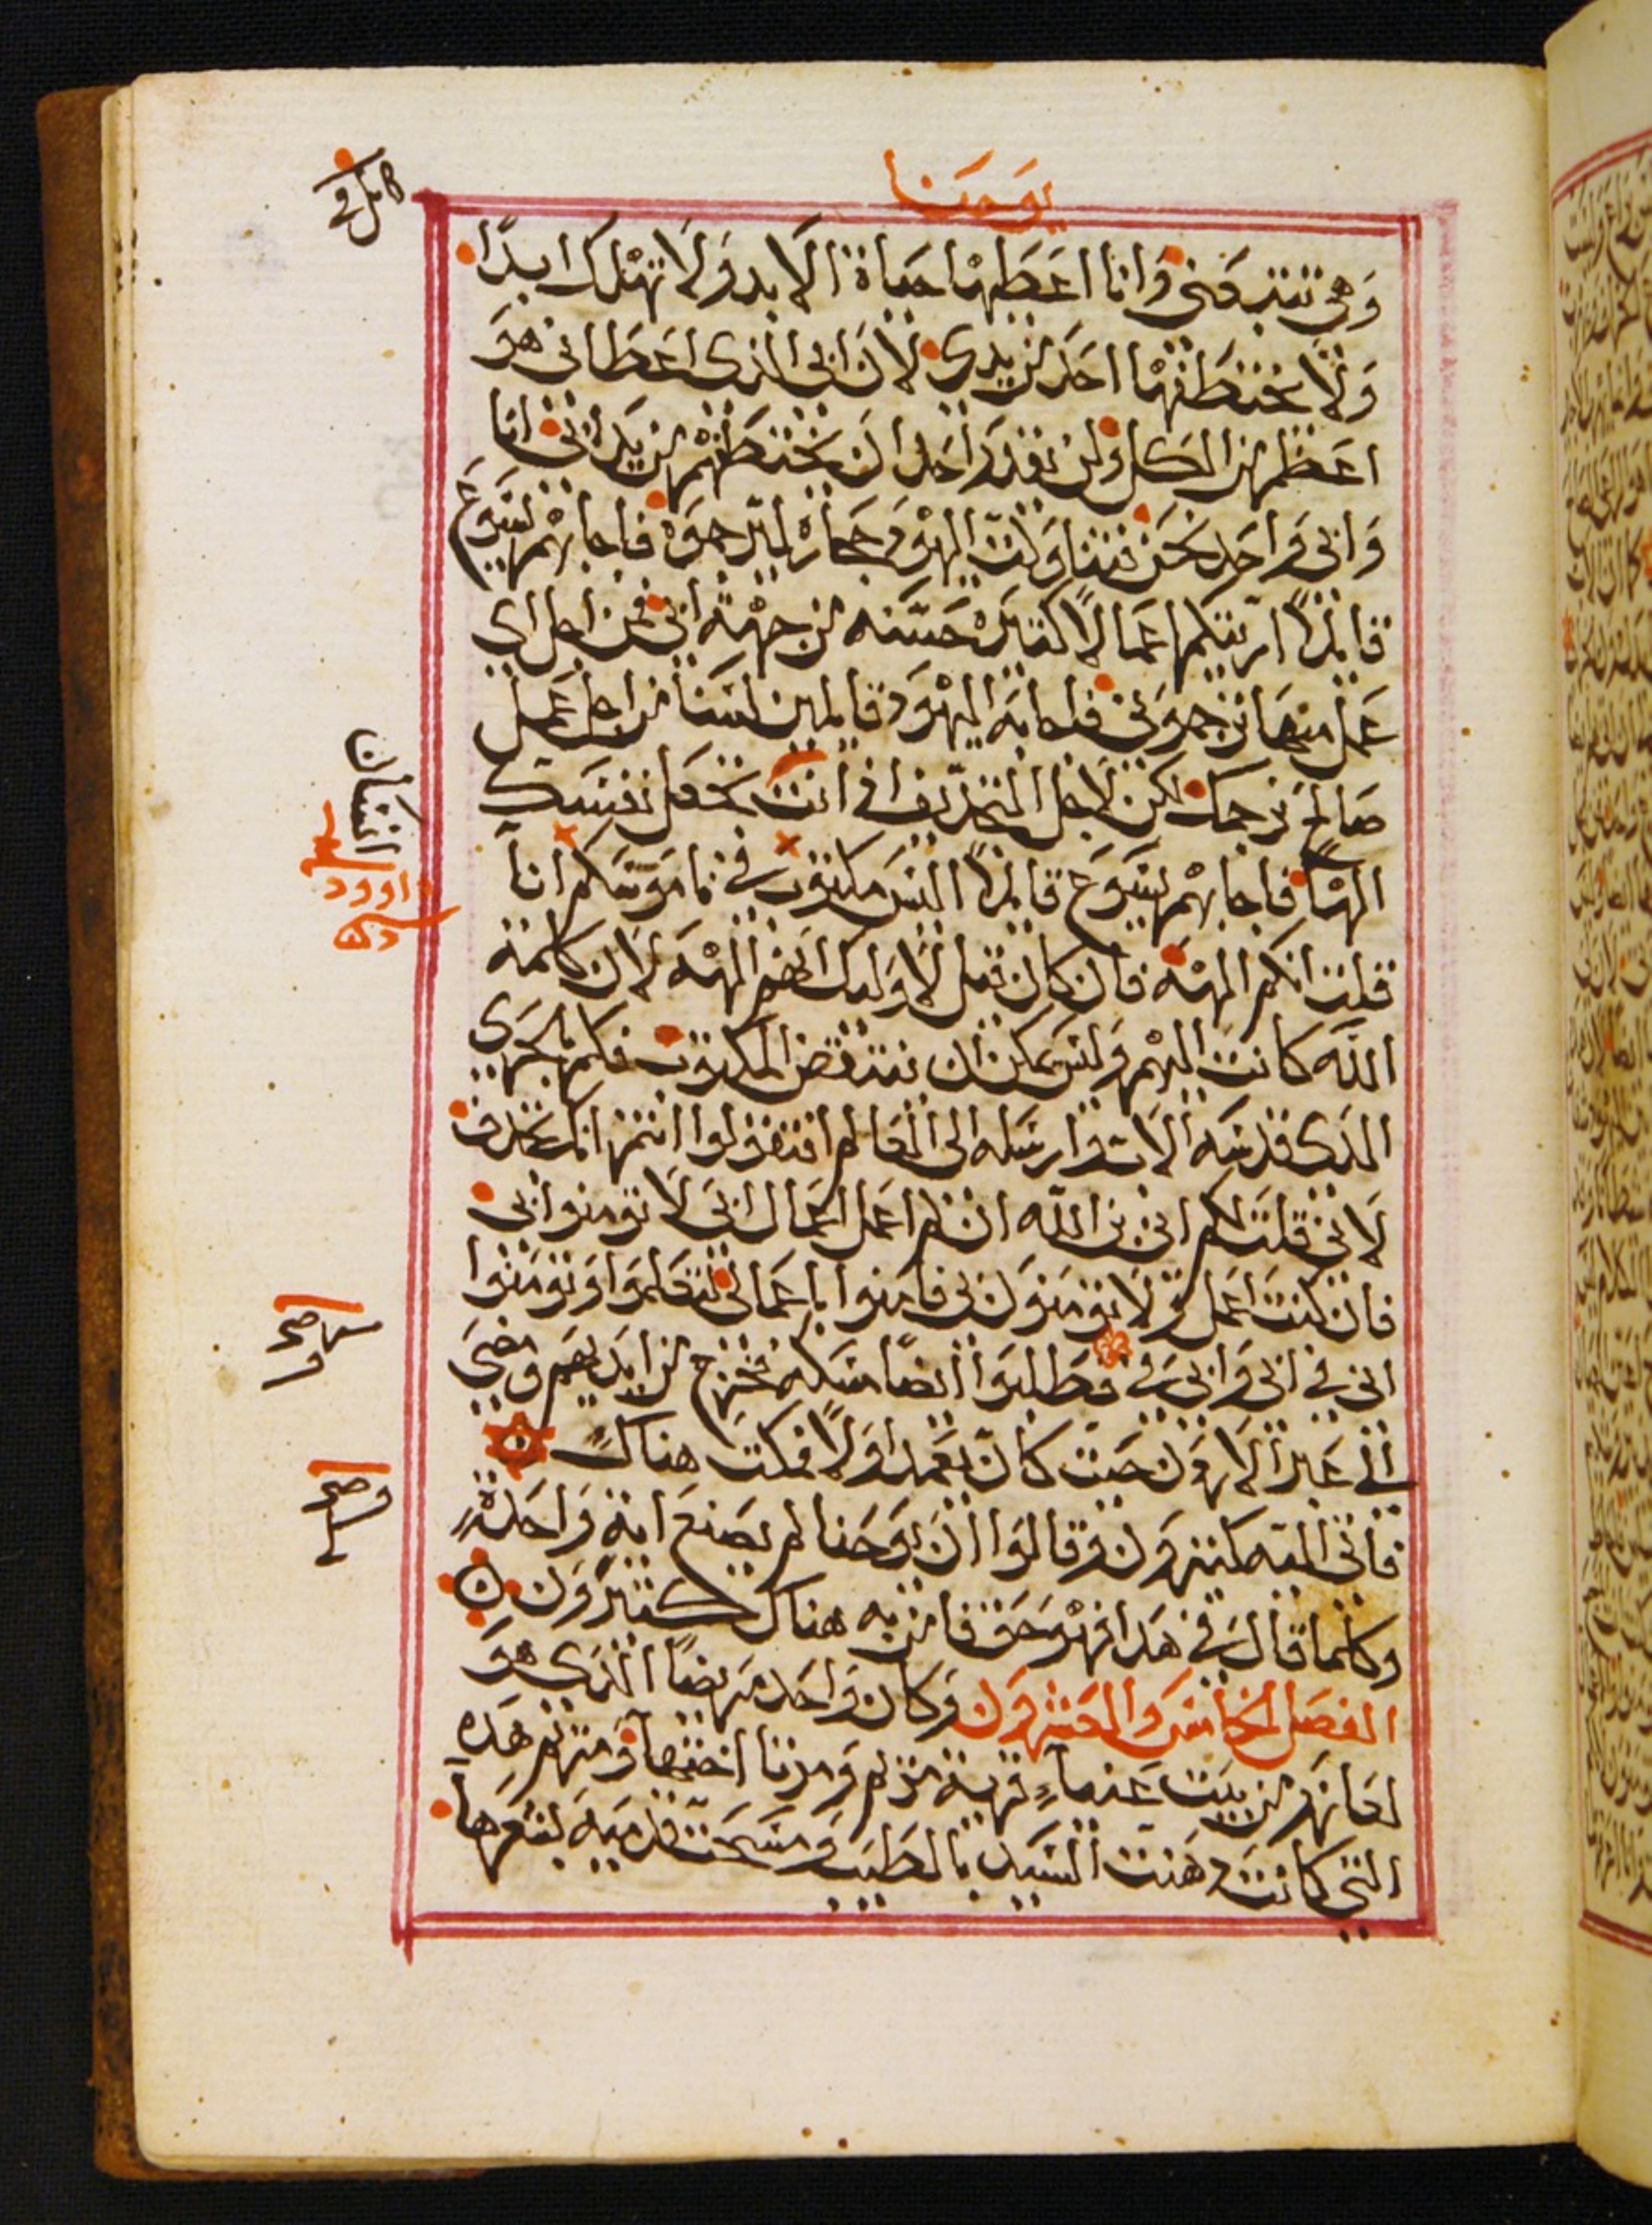 يوحنا
وهي تتبعني وانا اعطيها حياة الابد ولا تهلك ابدًا
ولا يختطفها احد من يدي لان ابي الذي اعطاني هو
اعظم من الكل ولن يقدر احد ان يختطفهم من يد ابي انا
وابي واحد نحن فتناولت اليهود حجارة ليرجموه فاجابهم يسوع
قايلًا اريتكم اعمالًا كثيرة حسنه من جهة ابي فمن اجل اي
عمل منها ترجموني فاجابه اليهود قايلين لسنا من اجل عمل
صالح نرجمك لكن لاجل التجديف اذ انت تجعل نفسك
الهًا فاجابهم يسوع قايلًا اليس مكتوب في ناموسكم انا
قلت انكم الهه فان كان قيل لاوليك انهم الهه لان كلمة
الله كانت اليهم وليس يمكن ان ينتقض المكتوب فكم بالحري
الذي قدسه الاب وارسله الى العالم افتقولوا انتم انك تجدف
لاني قلت لكم اني بن الله ان لم اعمل اعمال ابي لا تومنوا بي
فان كنت اعمل ولا تومنون بي فامنوا باعمالي لتعلموا وتومنوا
اني في ابي وابي في فطلبوا ايضًا مسكه فخرج من ايديهم ومضى
الى عبر الاردن حيث كان يعمد اولًا فمكث هناك
فاتى اليه كثيرون وقالوا ان يوحنا لم يصنع اية واحدة
وكلما قال في هذا فهو حق فامن به هناك كثيرون
الفصل الخامس والعشرون وكان واحد مريضًا الذي هو
لعازر من بيت عنيا قرية مريم ومرتا اختها ومريم هذه
التي كانت دهنت السيد بالطيب ومسحت قدميه بشعرها
داوود